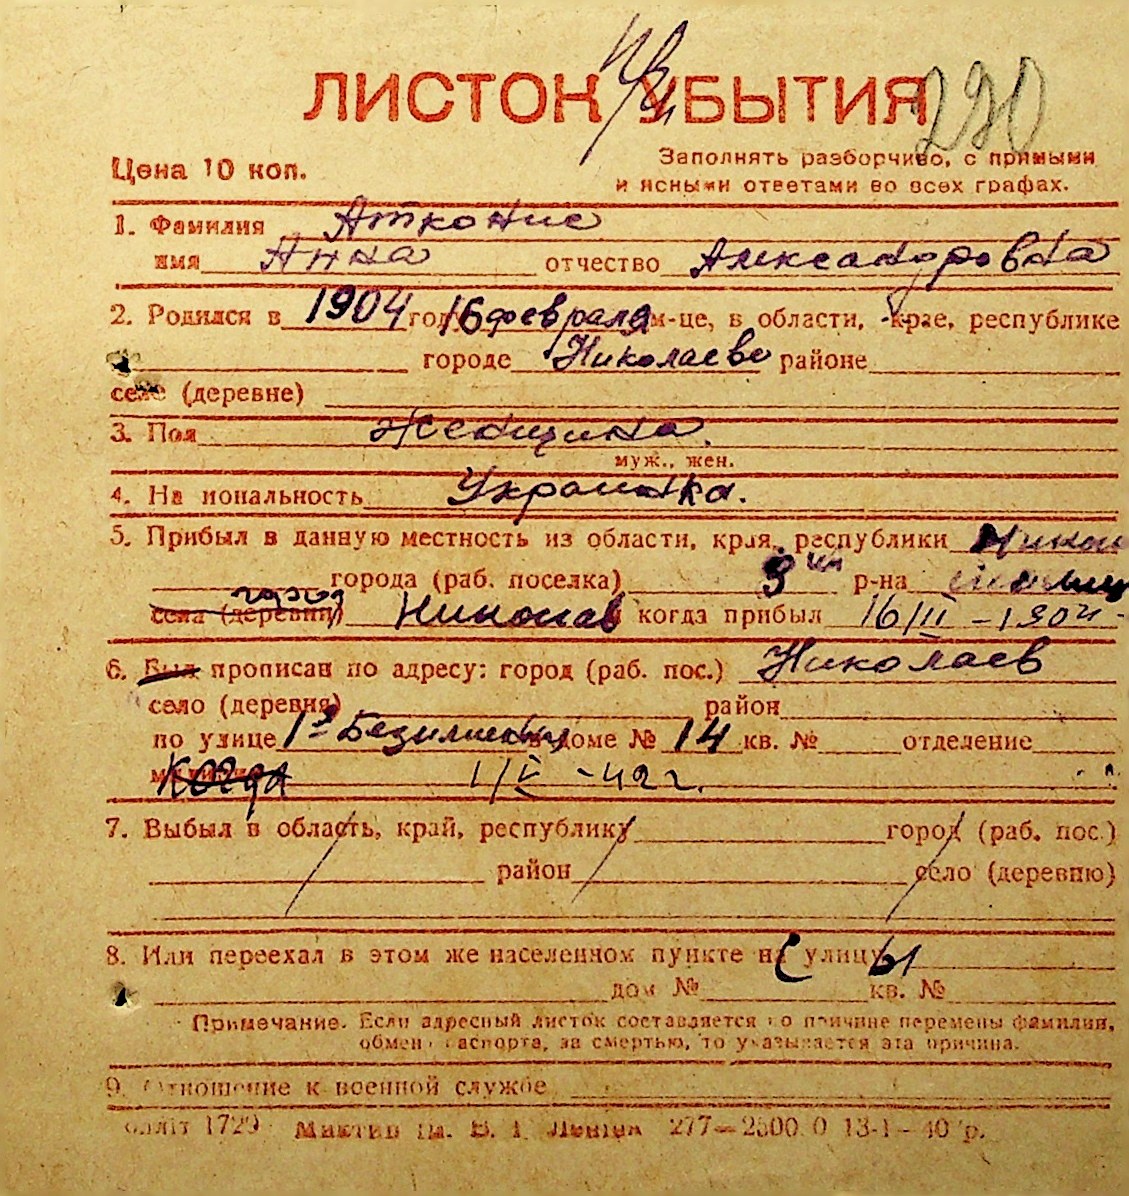 ЛИСТОК УБЫТИЯ 290
Цена 10 коп.
Заполнять разборчиво, с прямыми
и ясными ответами во всех графах.
1. Фамилия Атконис
имя Анна отчество Александровна
2. Родился в 1904 год 16 февраля м-це, в области, крае, республике
городе Николаеве районе
селе (деревне)
3. Пол Женщина.
муж., жен.
4. На иональность Украинка.
5. Прибыл в данную местность из области, края, республики
города (раб. поселка) р-на
село (деревни) город Николаев когда прибыл 16/II - 1904
6. Был прописан по адресу: город (раб. пос.) Николаев
село (деревня) район
по улице 1я в доме № 14 кв. № отделение
когда 1/V - 42 г.
7. Выбыл в область, край, республику город (раб. пос.)
район село (деревню)
8. Или переехал в этом же населенном пункте на с улицы
дом № кв. №
Примечание. Если адресный листок составляется по причине перемены фамилии,
обмен паспорта, за смертью, то указывается эта причина.
9. Отношение к военной службе
1729 Миктип ім. В. І. Леніна 277—2500 0 13-1-40 р.